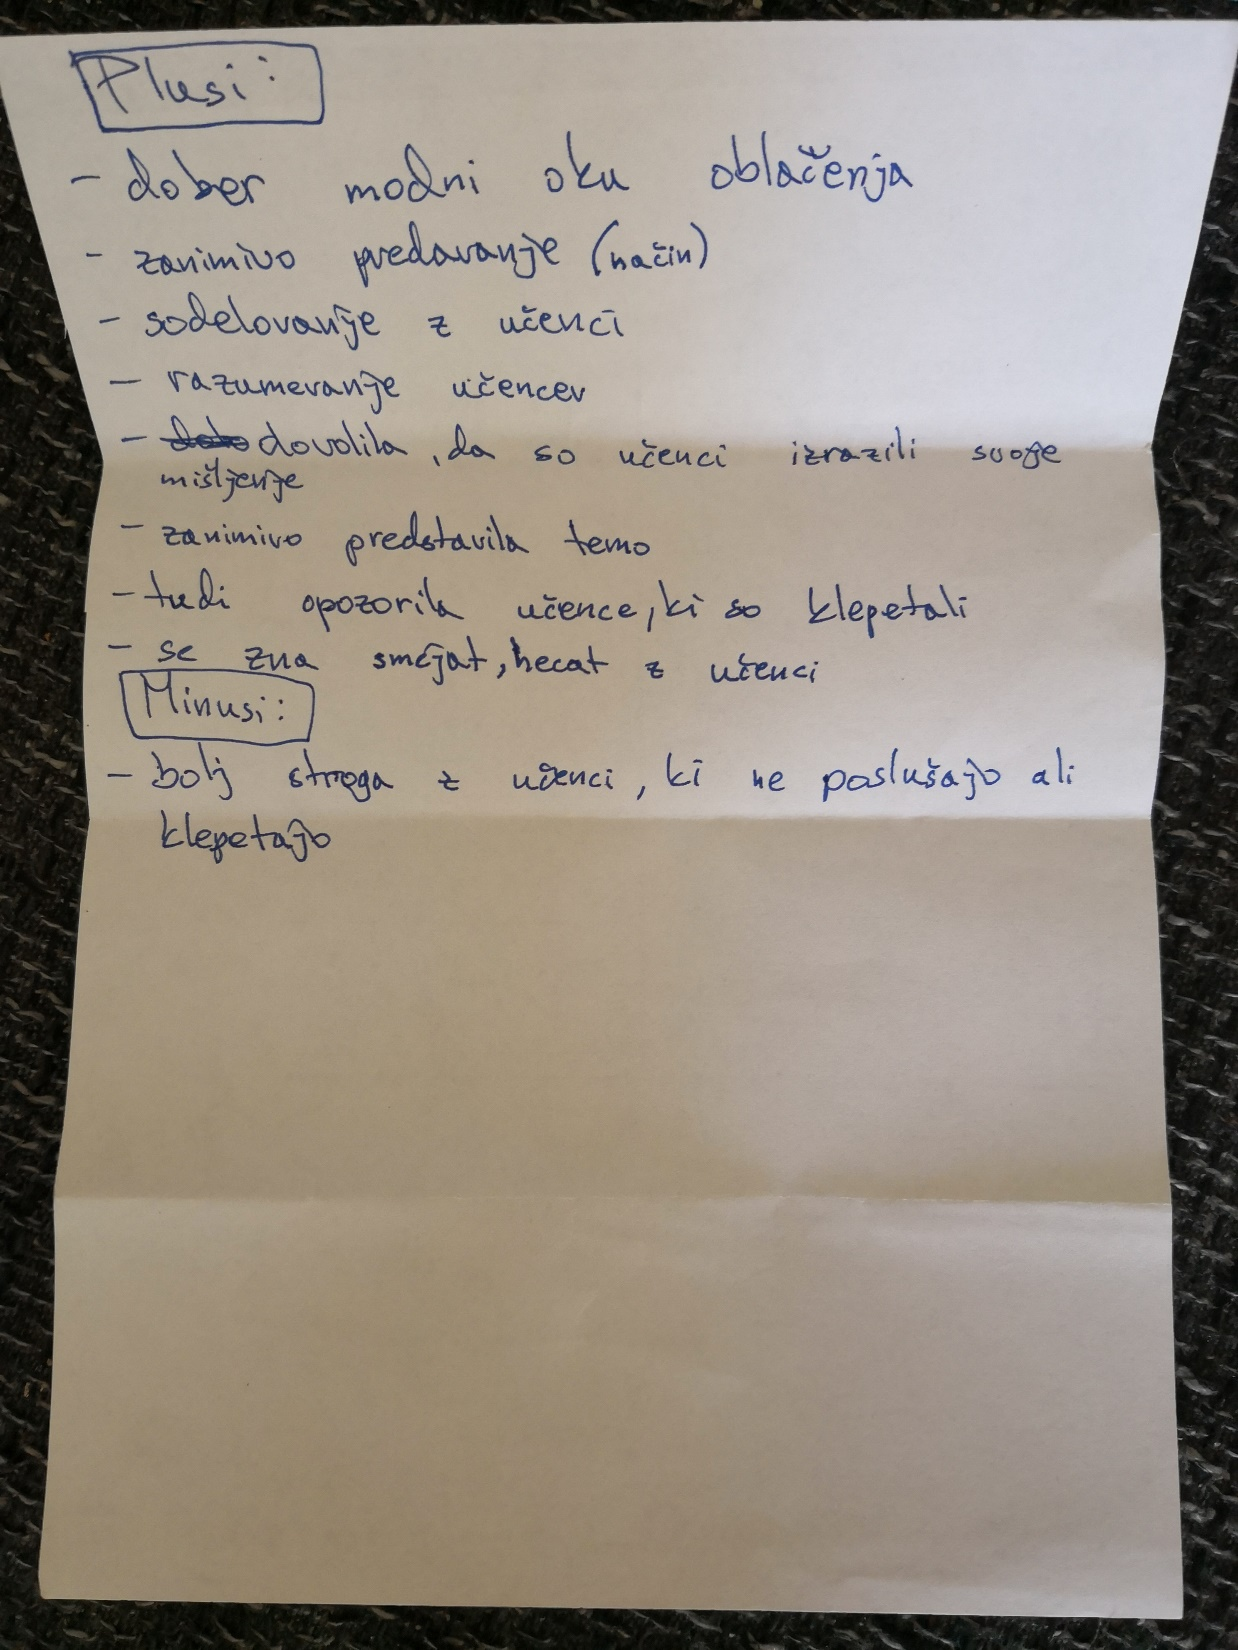 Plusi:
- dober modni oku oblačenja
- zanimivo predavanje (način)
- sodelovanje z učenci
- razumevanje učencev
- dovolila, da so učenci izrazili svoje
mišljenje
- zanimivo predstavila temo
- tudi opozorila učence, ki so klepetali
- se zna smejat, hecat z učenci
Minusi:
- bolj stroga z učenci, ki ne poslušajo ali
klepetajo